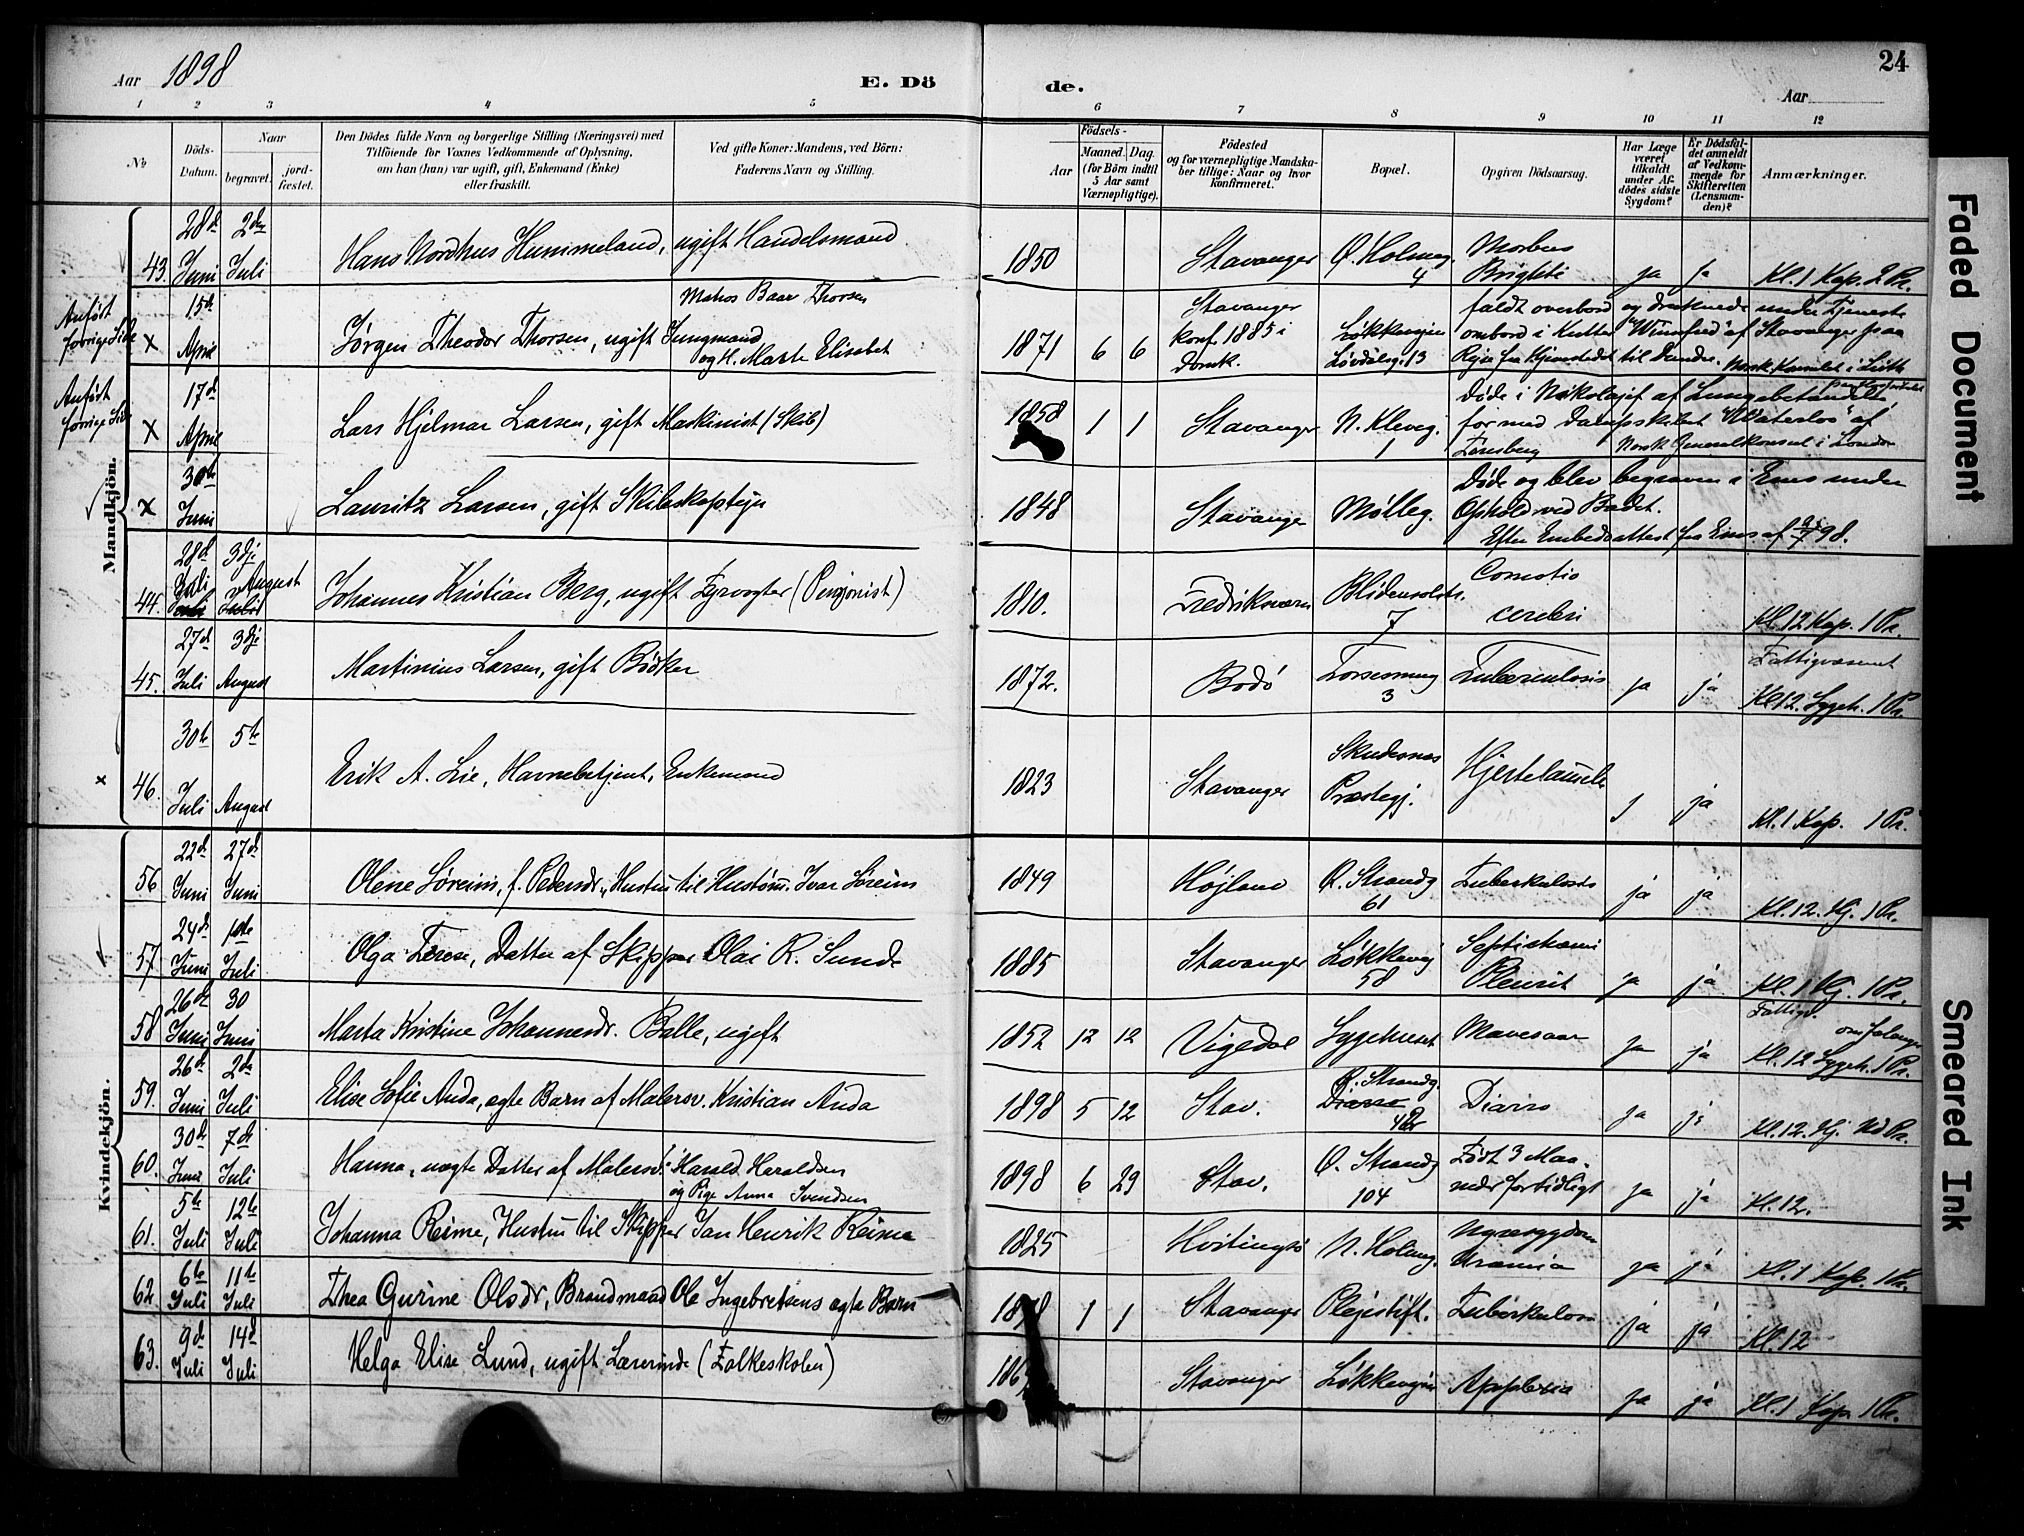 Aar 1898
E. Dö de.
24
Aar
1 2 3 4 5 6 7 8 9 10 11 12
No
Döds-Datum.
Naar
begravet. jord-fæstet.
Den Dödes fulde Navn og borgerlige Stilling (Næringsvei) med
Tilföiende for Voxnes Vedkommende af Oplysning,
om han (hun) var ugift, gift, Enkemand (Enke)
eller fraskilt.
Ved gifte Koner: Mandens, ved Börn:
Faderens Navn og Stilling.
Födsels-
Aar
Maaned. Dag.
(for Börn indtil
5 Aar samt
Værnepligtige).
Födested
og for værnepligtige Mandska-
ber tillige: Naar og hvor
konfirmeret.
Bopæl.
Opgiven Dödsaarsag.
Har Læge
været
tilkaldt
under Af-
dödes sidste
Sygdom?
Er Dödsfal-
det anmeldt
af Vedkom-
mende for
Skifteretten
(Lensman-
den)?
Anmærkninger.
Mandkjön.
43. 28d Juni 2den Juli Hans Nordhus Hummeland, ugift Handelsmand 1850 Stavanger Ø. Holmeg. 4 Morbus Brightii ja ja Kl. 1 Kap. 2 Pr.
Anført forrige Side
x 15d April Jørgen Theodor Thorsen, ugift Jungmand
Matros Baar Thorsen
og H. Marte Elisabet
1871 6 6 Stavanger konf. 1885 i Domk. Løkkeveien Løvdalsg. 13
faldt overbord og druknede under Tjeneste
ombord i Kutter "Winnifred" af Stavanger paa
Rejse fra til Dundee. Norsk Konsulat i Leith
Anført forrige Side
x 17d April Lars Hjelmar Larsen, gift Maskinist (Skib) 1858 1 1 Stavanger N. Kleveg. 1
Døde i Nikolajef af Lungebetændelse,
for med Dampskibet "Waterloo" af
Tønsberg Norsk Generalkonsul i London
x 30te Juni Lauritz Larsen, gift Skibskaptejn 1848 Stavanger Mølleg.
Døde og blev begraven i Ems under
Ophold ved Badet.
Efter Embedsattest fra Ems af 98.
44. 28d Juli 3dje August Johannes Kristian Berg, ugift Fyrvogter (Pensjonist) 1810. Fredriksværn Blidensolstr. 7 Comotio cerebri Kl. 12 Kap. 1 Pr.
45. 27d Juli 3dje August Martinius Larsen, gift Bødker 1872. Bodø 3 Tuberculosis ja ja Fattigvæsenet Kl. 12. Sygeh. 1 Pr.
x 46. 30te Juli 5te August Erik A. Lie, Havnebetjent, Enkemand 1823 Stavanger Skudesnes Præstegj. Hjertelammelse j ja Kl. 1 Kap. 1 Pr.
Kvindekjön.
56 22d Juni 27d Juni Olene Søreim, f. Pedersdr., Hustru til Hustøm. Ivar Søreim 1849 Højland Ø. Strandg 61 Tuberkulosis ja ja Kl. 12. Kj. 1 Pr.
57 24d Juni 1ste Juli Olga Terese, Datter af Skipper Olai R. Sunde 1885 Stavanger Løkkevej 58 Septichæmi Pleurit ja ja Kl. 1 Kj. 1 Pr.
58 26de Juni 30 Juni Marta Kristine Johannesdr. Balle, ugift 1852 12 12 Vigedal Sygehuset Mavesaar ja ja Fattigv. Kl. 12 Sygeh. 1 Pr.
59. 26d Juni 2den Juli Elise Sofie Anda, ægte Barn af Malersv. Kristian Anda 1898 5 12 Stav. Ø. Strandg. Diarré ja ja Kl. 12. Kj.
60. 30d Juni 7de Juli Hanna, uægte Datter af Malersv. Harald Haraldsen
og Pige Anna Svendsen
1898 6 29 Stav. Ø. Strandg 104 Født 3 Maaneder fortidligt ja ja Kl. 12.
61. 5te Juli 12te Juli Johanna Reime, Hustru til Skipper Jan Henrik Reime 1825 Hvitingsø N. Holmeg. Nyresygdom Uræmia ja ja Kl. 1 Kap. 1 Pr.
62 6te Juli 11te Juli Thea Gurine Olsdr, Brandmand Ole Ingebretsens ægte Barn 1898 1 1 Stavanger Plejestift. Tuberkulose ja ja Kl. 12
63. 9d Juli 14d Juli Helga Elise Lund, ugift Lærerinde (Folkeskolen) 186 Stavanger Løkkevejen Apoplexia ja ja Kl. 1 Kap 1 Pr.
Faded Document
Smeared Ink